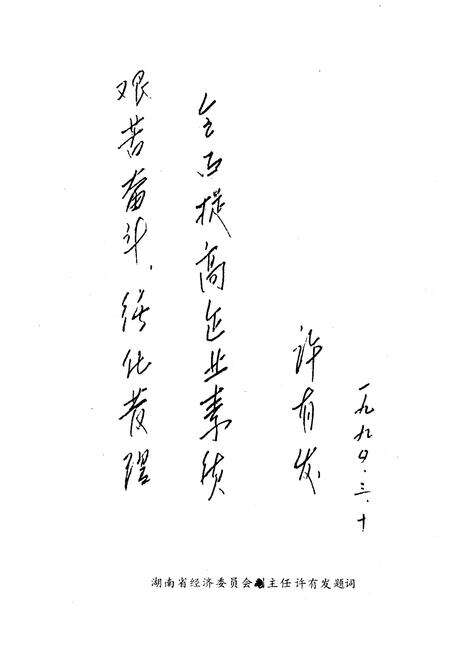 艰苦奋斗、强化管理
全面提高企业素质
许有发
一九九〇.三.十
湖南省经济委员会副主任许有发题词